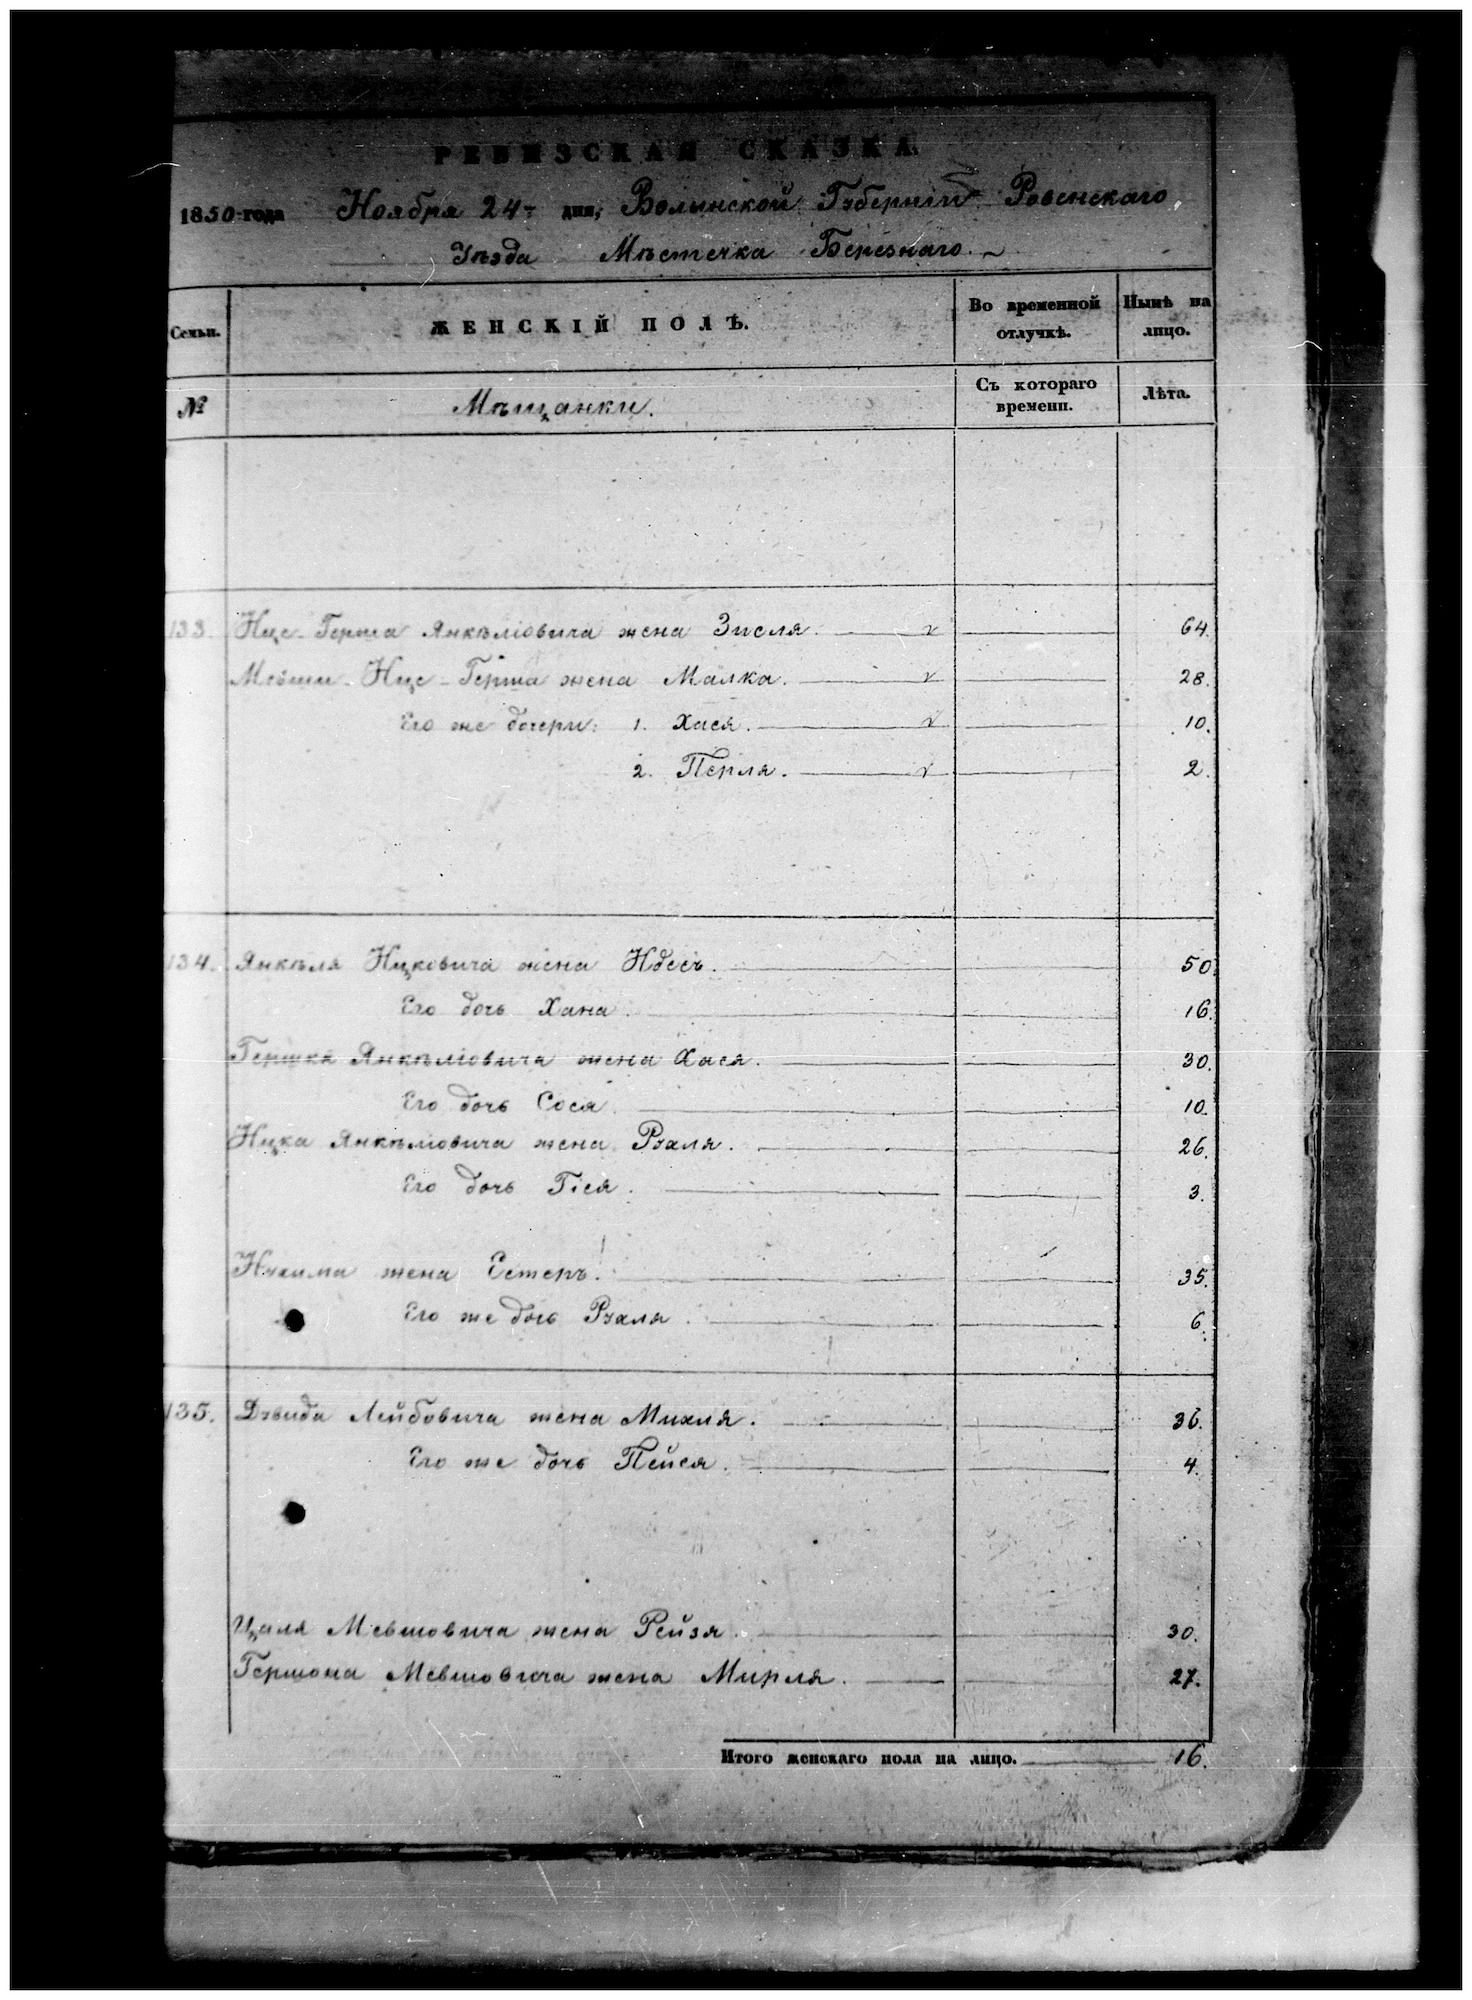 РЕВИЗСКАЯ СКАЗКА.
1850 года Ноября 24 дня, Волынской Губерніи Ровенскаго
Уѣзда Мѣстечка Березнаго
Семьи. ЖЕНСКІЙ ПОЛЪ. Во временной отлучкѣ. Нынѣ на лицо.
№ Мѣщанки. Съ котораго времени. Лѣта.
133. Ице-Герша Янкѣліовича жена Зисля. 64.
Мевши Ице-Герша жена Малка. 28.
Его же дочери: 1. Хася. 10.
2. Перля. 2.
134. Янкѣля Ицковича жена Идесь. 50
Его дочь Хана. 16.
Гершка Янкѣліовича жена Хася. 30.
Его дочь Сося. 10.
Ицка Янкѣліовича жена Рухля. 26.
Его дочь Гіся. 3.
Нухима жена Естеръ. 35.
Его же дочь Рухля. 6.
135. Дувида Лейбовича жена Михля. 36.
Его же дочь Пейся. 4.
Цаля Мевшовича жена Рейзя. 30.
Гершона Мевшовича жена Мирля. 27.
Итого женскаго пола на лицо. 16.